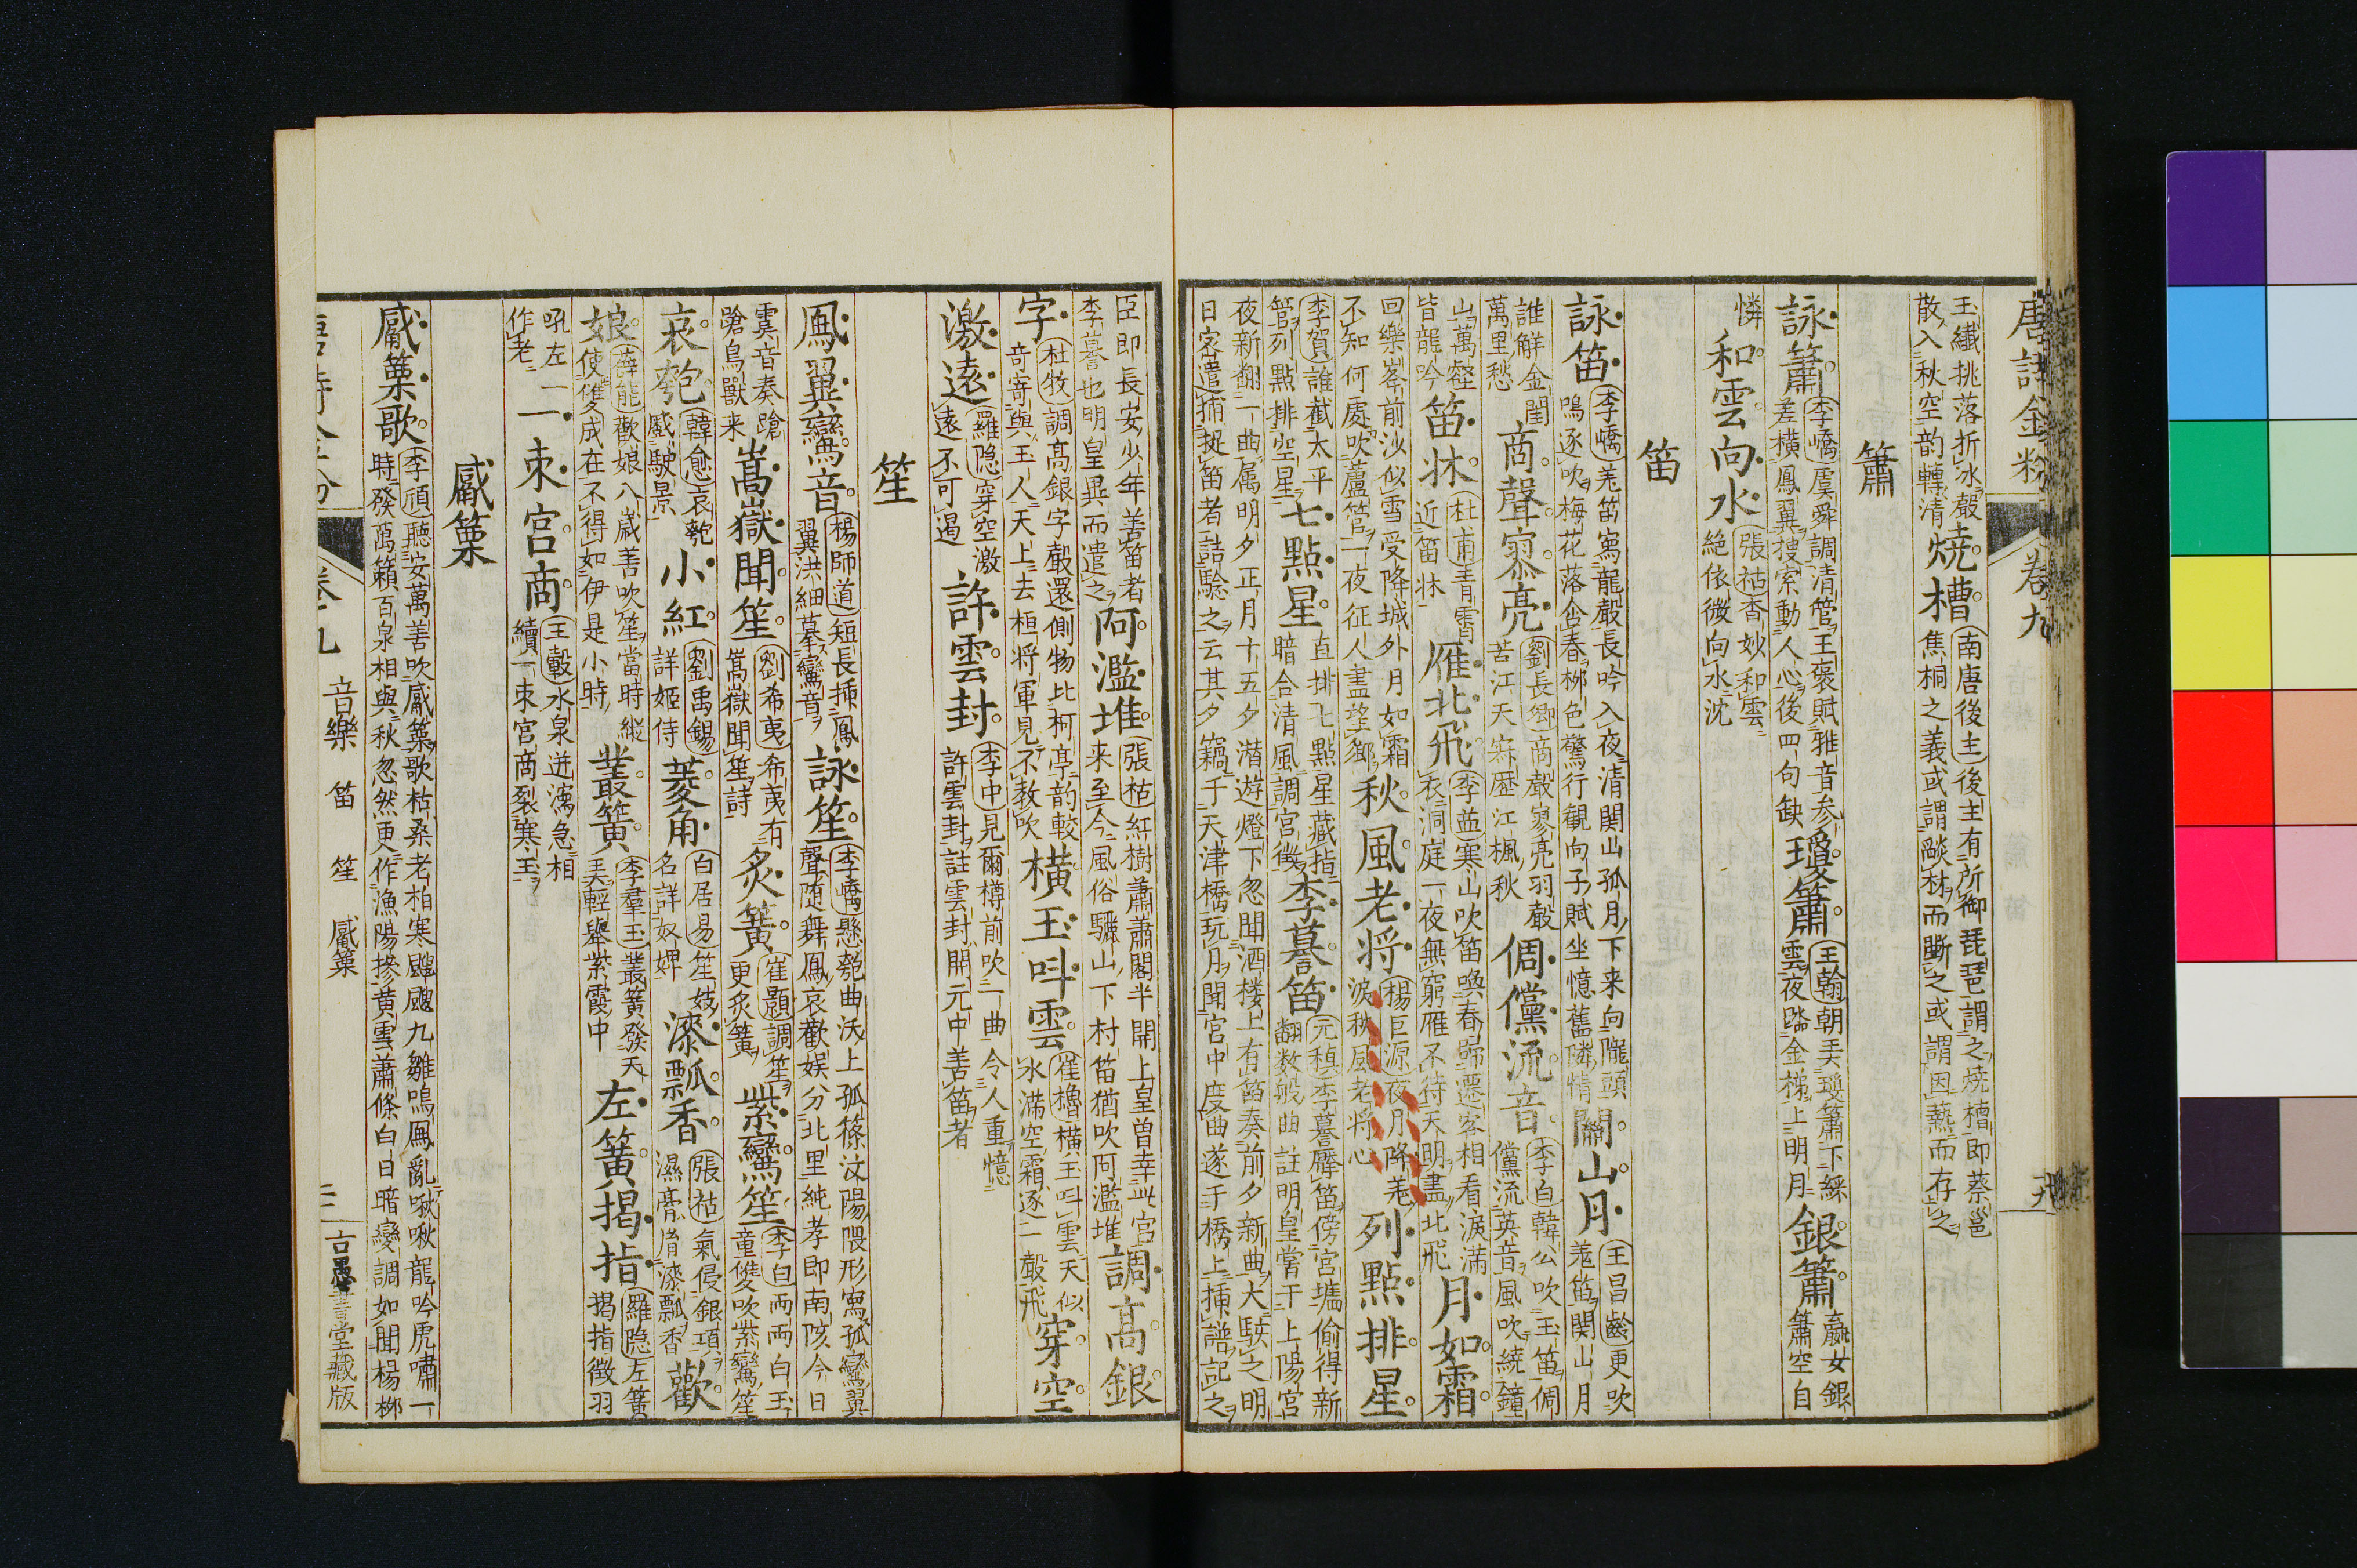 唐詩金粉 卷九
玉纖挑落折氷聲
散入秋空韵轉清
燒槽
南唐後主後主有所御琵琶謂之燒槽即蔡邕
焦桐之義或謂燄材而斷之或謂因爇而存之
簫
詠簫
李嶠虞舜調清管王褒賦雅音参
差橫鳳翼搜索動人心後四句缺
瓊簫
王翰朝天瓊簫下綵
雲夜踏金梯上明月
銀簫
嬴女銀
簫空自
憐
和雲向水
張祜杳妙和雲
絶依微向水沈
笛
詠笛
李嶠羌笛寫龍聲長吟入夜清関山孤月下来向隴頭
鳴逐吹梅花落含春栁色驚行観向子賦坐憶舊隣情
関山月
王昌齡更吹
羗笛関山月
誰解金閨
萬里愁
商聲寥亮
劉長卿商聲寥亮羽聲
苦江天寂歴江楓秋
倜儻流音
李白韓公吹玉笛倜
儻流英音風吹繞鐘
山萬壑
皆龍吟
笛牀
杜甫青霄
近笛牀
雁北飛
李益寒山吹笛喚春歸遷客相看淚滿
衣洞庭一夜無窮雁不待天明盡北飛
月如霜
回樂峯前沙似雪受降城外月如霜
不知何處吹蘆管一夜征人盡望郷
秋風老将
楊巨源夜月降羌
淚秋風老将心
列點排星
李賀誰截太平
管列點排空星
七點星
直排七點星藏指
暗合清風調宮徴
李謩笛
元稹李謩擪笛傍宮墻偷得新
翻数般曲註明皇嘗于上陽宮
夜新翻一曲属明夕正月十五夕潜遊燈下忽聞酒楼上有笛奏前夕新曲大駭之明
日密遣捕捉笛者詰験之云其夕竊于天津橋玩月聞宮中度曲遂于橋上挿譜記之
臣即長安少年善笛者
李謩也明皇異而遣之
阿濫堆
張祜紅樹蕭蕭閣半開上皇曽幸此宮
来至今風俗驪山下村笛猶吹阿濫堆
調高銀
字
杜牧調高銀字聲還側物比柯亭韵較
奇寄與玉人天上去桓将軍見不教吹
橫玉呌雲
崔櫓橫玉呌雲天似
水滿空霜逐一聲飛
穿空
激遠
羅隠穿空激
遠不可遏
許雲封
李中見爾樽前吹一曲令人重憶
許雲封註雲封開元中善笛者
笙
鳳翼鸞音
楊師道短長挿鳳
翼洪細摹鸞音
詠笙
李嶠懸匏曲沃上孤篠汶陽隈形寫孤鸞翼
聲随舞鳳哀歡娯分北里純孝即南陔今日
虞音奏蹌
蹌鳥獸来
嵩嶽聞笙
劉希夷希夷有
嵩嶽聞笙詩
炙簧
崔顥調笙
更炙簧
紫鸞笙
李白両両白玉
童雙吹紫鸞笙
哀匏
韓愈哀匏
蹙駛景
小紅
劉禹錫
詳姬侍
菱角
白居易笙妓
名詳奴婢
漆瓢香
張祜氣侵銀項
濕膏胤漆瓢香
歡
娘
薛能歡娘八歳善吹笙當時縦
使雙成在不得如伊是小時
叢簧
李羣玉叢簧發天
美輕擧紫霞中
左簧揭指
羅隠左簧
揭指徴羽
吼左一
作老
一束宮商
王轂水泉迸瀉急相
續一束宮商裂寒玉
觱篥
觱篥歌
李頎聽安萬善吹觱篥歌枯桑老柏寒颼飀九雛鳴鳳亂啾啾龍吟虎嘯一
時發萬籟百泉相與秋忽然更作漁陽摻黄雲蕭條白日暗變調如聞楊栁
唐詩金粉 卷九 音樂 笛 笙 觱篥 古愚書堂藏版